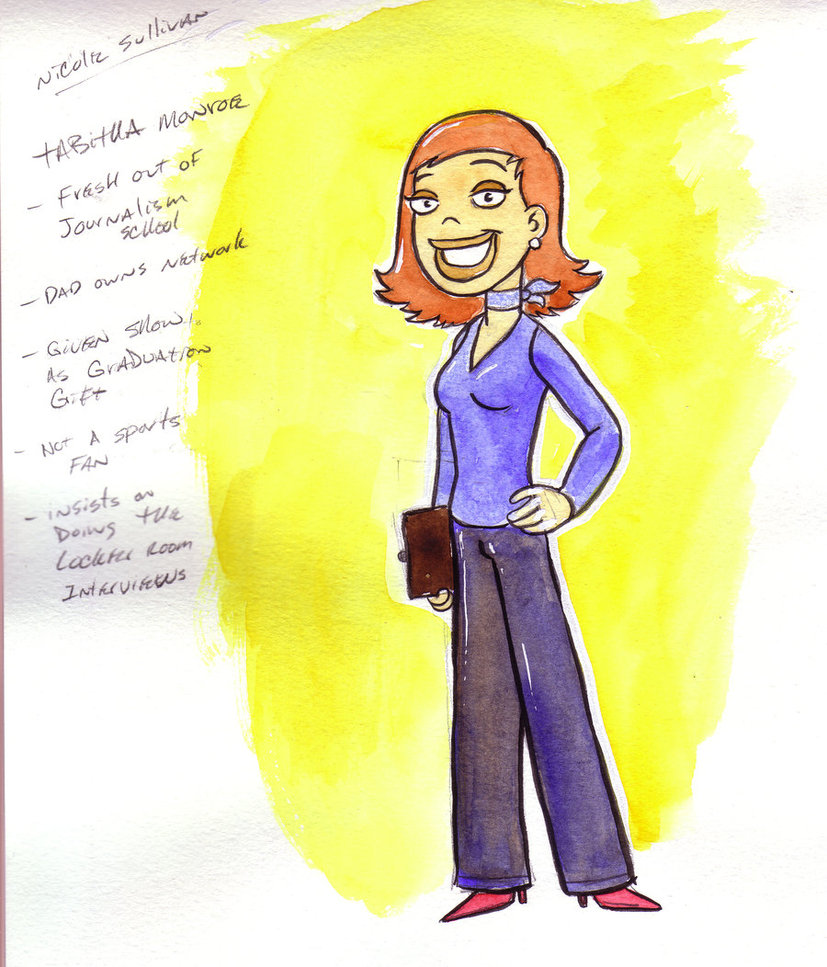 Nicole Sullivan
Tabitha Monroe
- Fresh out of
Journalism
school
- Dad owns network
- Given show
as Graduation
Gift
- Not a sports
fan
- insists on
Doing the
Locker room
Interviews